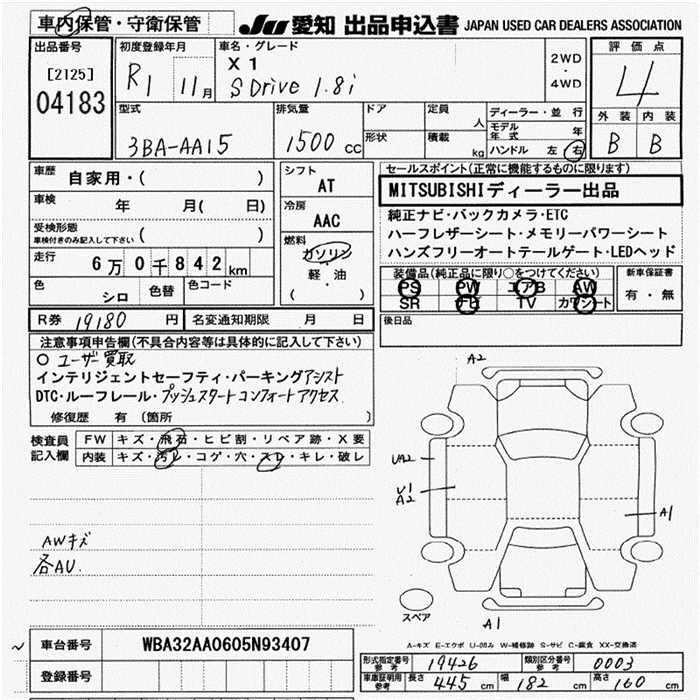 車内保管・守衛保管
JU 愛知 出品申込書 JAPAN USED CAR DEALERS ASSOCIATION
出品番号
[2125]
04183
初度登録年月
R1 11月
車名・グレード
X1
SDrive 1.8i
2WD
・
4WD
評価点
4
外装 内装
B B
型式
3BA-AA15
排気量
1500 CC
ドア
形状
定員 人
積載 kg
ディーラー・並行
モデル年式 年
ハンドル 左 右
車歴
自家用・( )
車検
年 月( 日)
受検形態
車検付きのみ記入して下さい ( )
走行
6万0千842km
色
シロ
色替
色コード
シフト
AT
冷房
AAC
燃料
ガソリン
・
軽・油
( ・ )
セールスポイント(正常に機能するものに限ります)
MITSUBISHIディーラー出品
純正ナビ・バックカメラ・ETC
ハーフレザーシート・メモリーパワーシート
ハンズフリーオートテールゲート・LEDヘッド
装備品(純正品に限り○をつけてください)
PS PW エアB AW
SR ナビ TV カワシート
新車保証書
有・無
後日品
R券 19180 円
名変通知期限 月 日
注意事項申告欄(不具合内容等は具体的に記入して下さい)
○ ユーザー買取
インテリジェントセーフティ・パーキングアシスト
DTC・ルーフレール・プッシュスタート コンフォートアクセス
修復歴 有 (箇所 )
検査員
記入欄
FW キズ・飛石・ヒビ割・リペア跡・X要
内装 キズ・汚レ・コゲ・穴・スレ・キレ・破レ
AWキズ
各AU.
A2
UA2
U1
A2
A1
A1
スペア
A-キズ E-エクボ U-凹み W-補修跡 S-サビ C-腐食 XX-交換済
車台番号
WBA32AA0605N93407
登録番号
形式指定番号 参考
19426
類別区分番号 参考
0003
車庫証明用 参考
長さ 445 cm 幅 182 cm 高さ 160 cm